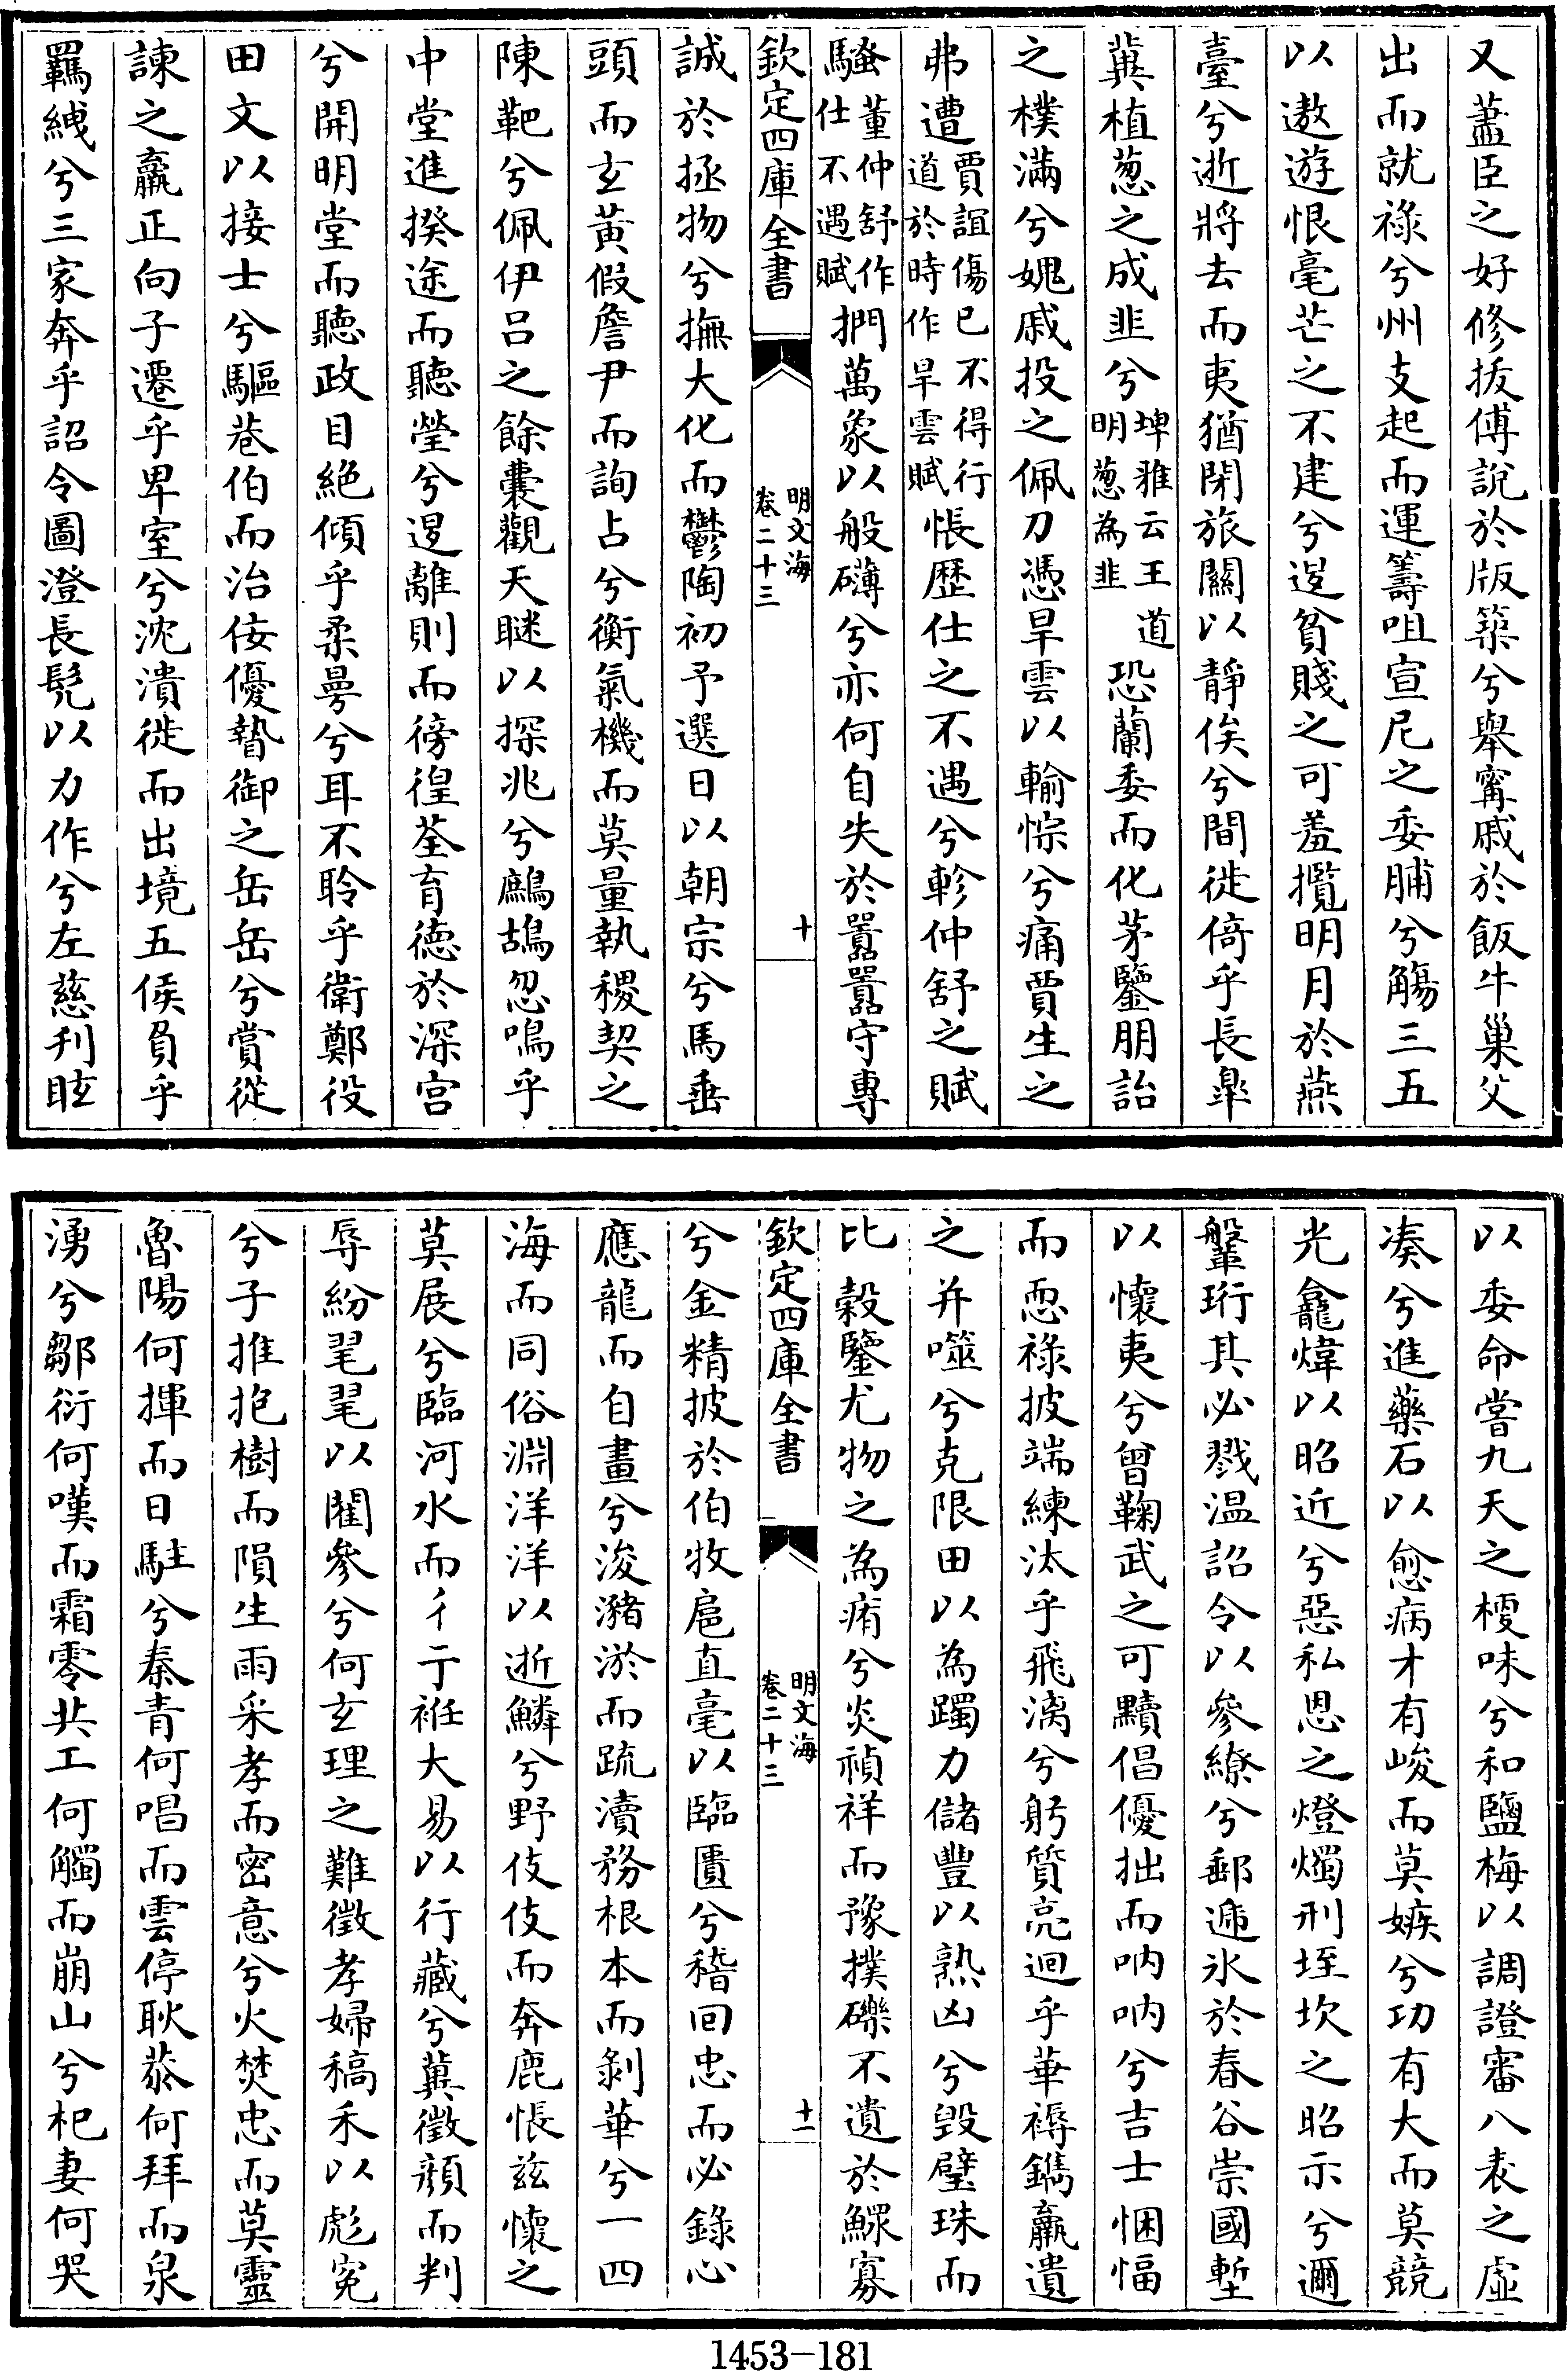 又藎臣之好修拔傅說於版築兮舉甯戚於飯牛巢父
出而就祿兮州支起而運籌咀宣尼之委脯兮觴三五
以遨遊恨毫芒之不建兮逞貧賤之可羞攬明月於燕
臺兮逝將去而夷猶閉旅關以靜俟兮間徙倚乎長皐
冀植葱之成韭兮埤雅云王道明葱為韭恐蘭委而化茅鑒朋詒
之樸滿兮媿戚投之佩刀憑旱雲以輸悰兮痛賈生之
弗遭賈誼傷己不得行道於時作旱雲賦悵歴仕之不遇兮軫仲舒之賦
騷董仲舒作仕不遇賦捫萬象以般礴兮亦何自失於嚚嚚守專
欽定四庫全書
明文海
卷二十三
十
誠於拯物兮撫大化而鬱陶初予選日以朝宗兮馬垂
頭而玄黃假詹尹而詢占兮衡氣機而莫量執稷契之
陳靶兮佩伊呂之餘囊觀天瞇以探兆兮鷓鴣忽鳴乎
中堂進揆途而聽瑩兮逞離則而徬徨荃育德於深宮
兮開明堂而聽政目絕傾乎柔曼兮耳不聆乎衛鄭役
田文以接士兮驅巷伯而治佞優贄御之岳岳兮賞從
諫之羸正向子遷乎卑室兮沈潰徙而出境五侯負乎
羈絏兮三家奔乎詔令圖澄長髡以力作兮左慈刋眩
以委命嘗九天之㮣味兮和鹽梅以調證審八表之虛
凑兮進藥石以愈病才有峻而莫嫉兮功有大而莫競
光龕煒以昭近兮惡私恩之燈燭刑垤坎之昭示兮邇
鞶珩其必戮溫詔令以參繚兮郵遞氷於春谷崇國塹
以懷夷兮曾鞠武之可黷倡優拙而吶吶兮吉士悃愊
而恧祿披端練汰乎飛漓兮躬質亮迴乎華褥鐫羸遺
之并噬兮克限田以為躅力儲豐以熟凶兮毀璧珠而
比穀鑒尤物之為痏兮炎禎祥而豫撲礫不遺於鰥寡
欽定四庫全書
明文海
卷二十三
十一
兮金精披於伯牧扈直毫以臨匱兮稽回忠而必錄心
應龍而自畫兮浚瀦淤而疏瀆務根本而剝華兮一四
海而同俗淵洋洋以逝鱗兮野伎伎而奔鹿悵兹懷之
莫展兮臨河水而彳亍袵大易以行藏兮冀徵顏而判
辱紛毣毣以闇參兮何玄理之難徵孝婦稿禾以彪寃
兮子推抱樹而隕生雨采孝而密意兮火焚忠而莫靈
魯陽何揮而日駐兮秦青何唱而雲停耿恭何拜而泉
湧兮鄒衍何嘆而霜零共工何觸而崩山兮杞妻何哭
1453-181